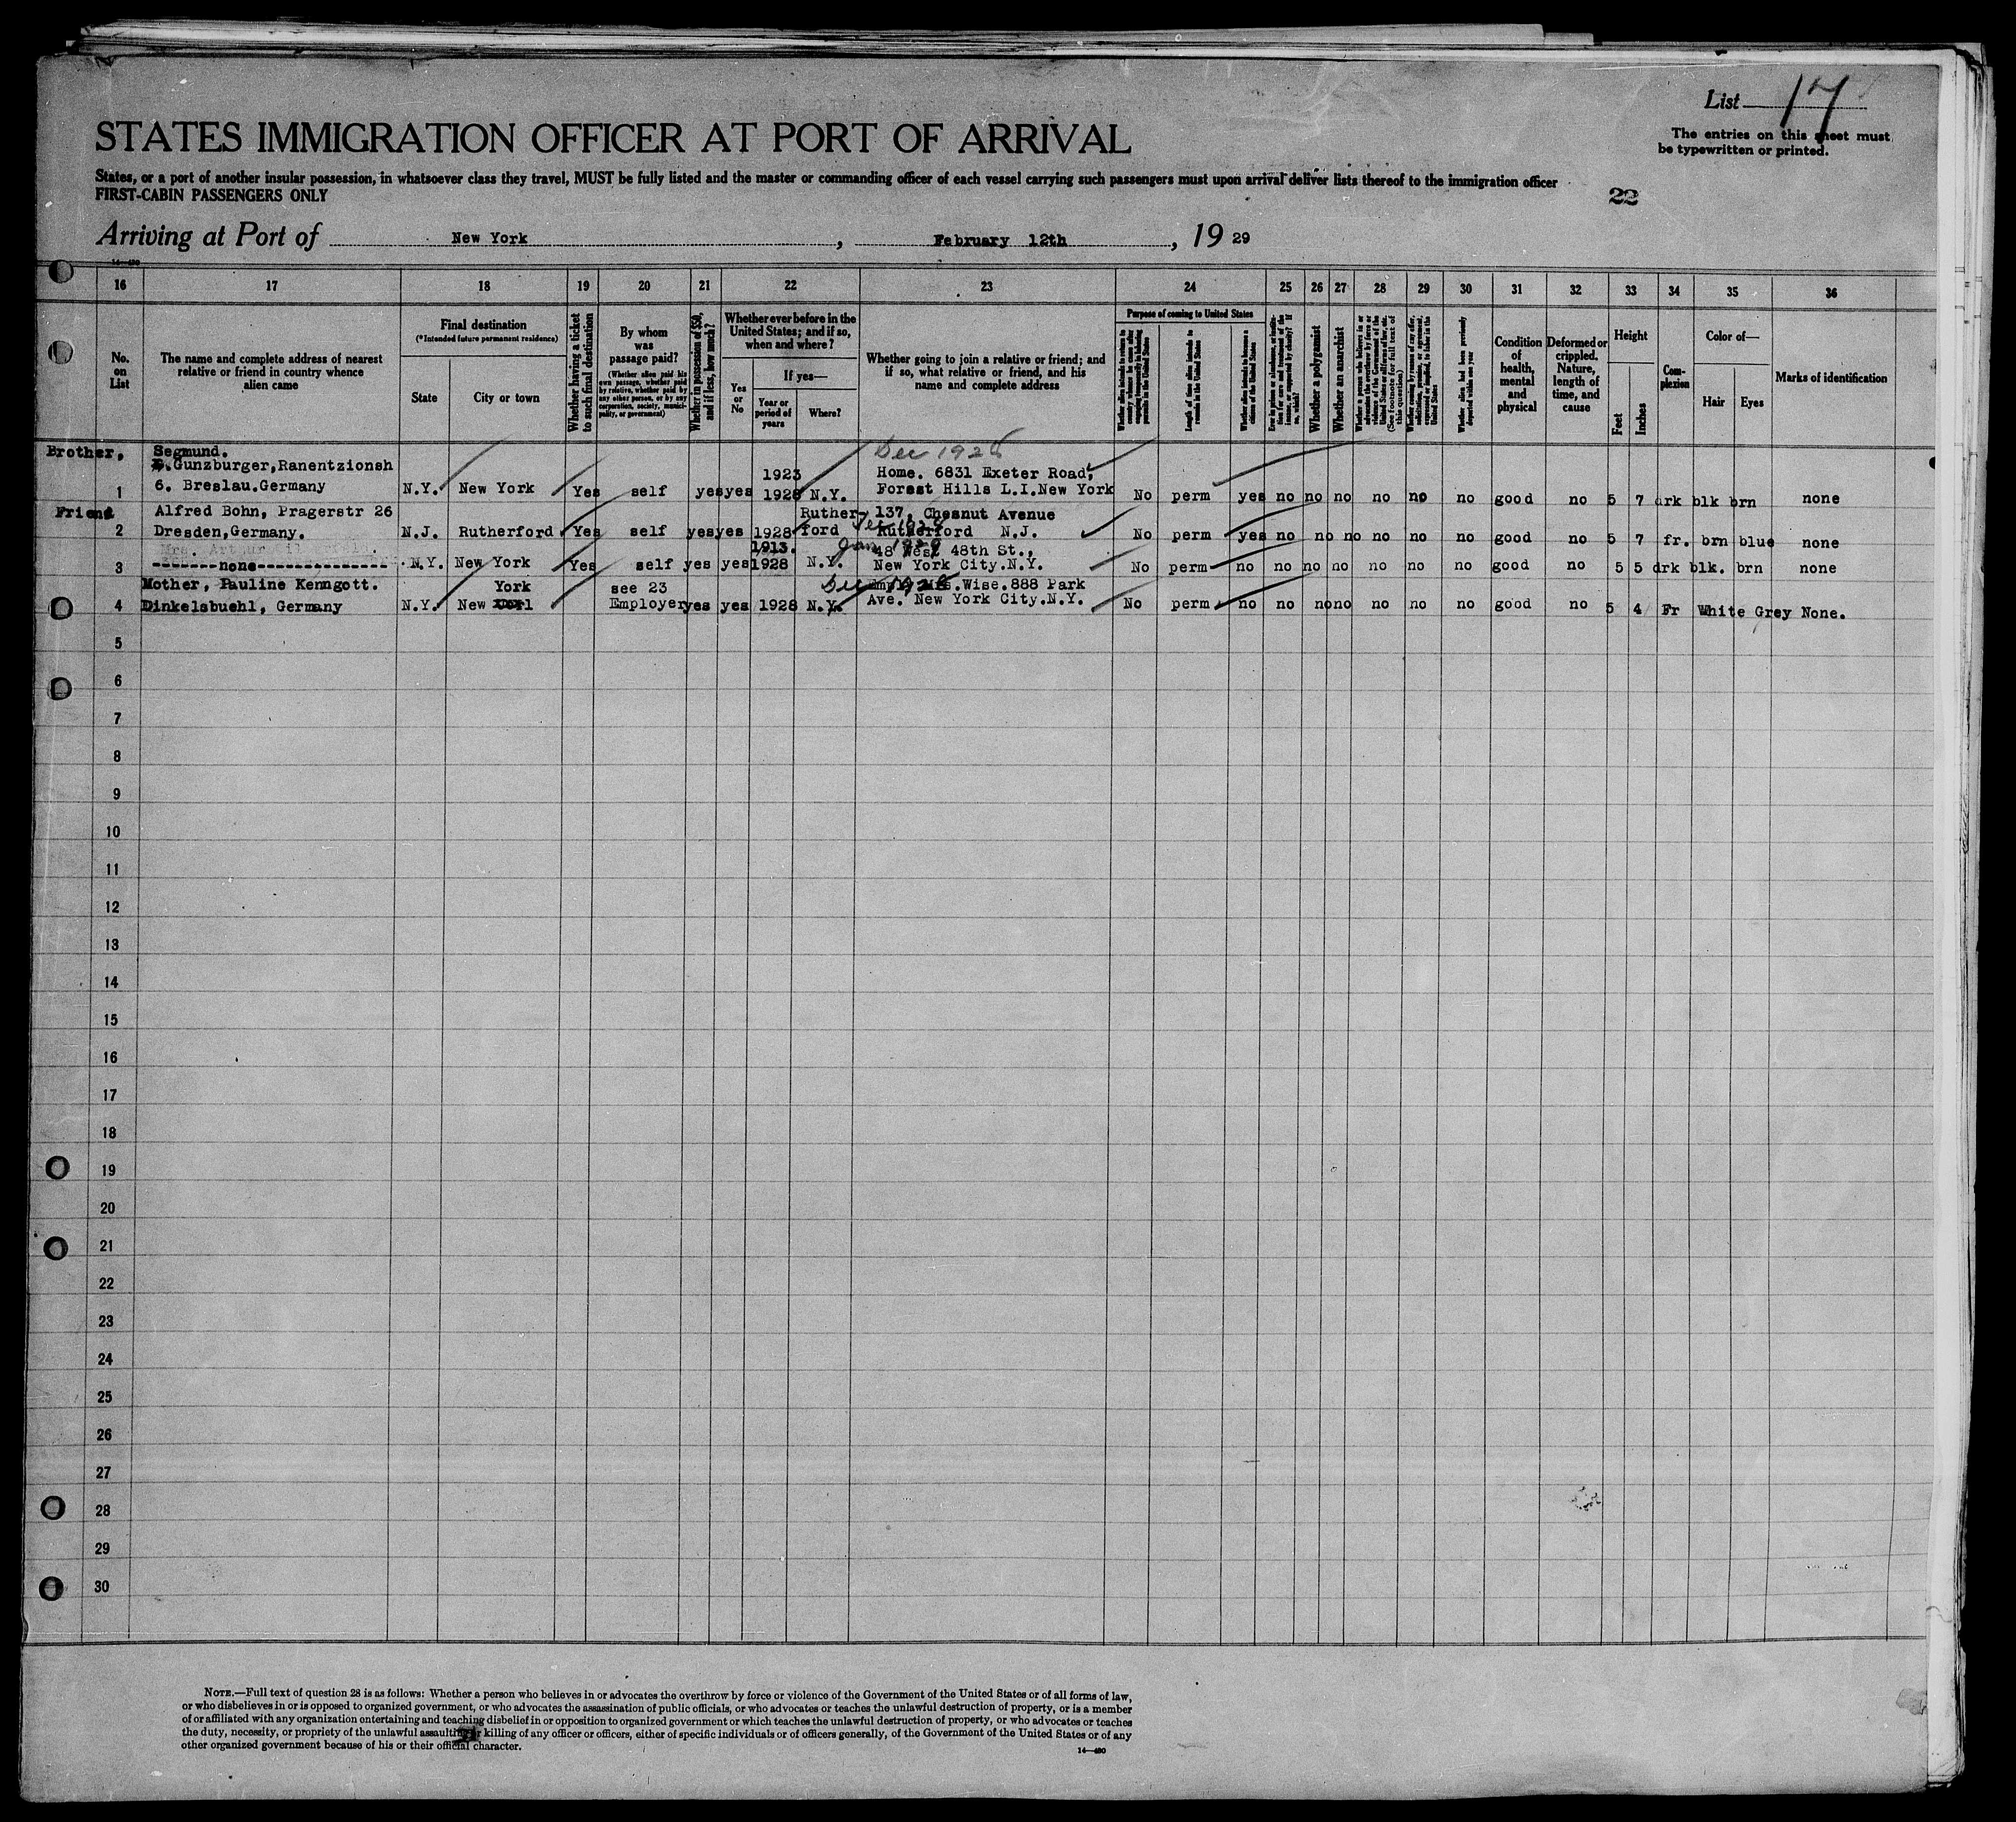 List 17
The entries on this sheet must
be typewritten or printed.
STATES IMMIGRATION OFFICER AT PORT OF ARRIVAL
States, or a port of another insular possession, in whatsoever class they travel, MUST be fully listed and the master or commanding officer of each vessel carrying such passengers must upon arrival deliver lists thereof to the immigration officer
FIRST-CABIN PASSENGERS ONLY
22
Arriving at Port of New York, February 12th, 1929
14-480
16 17 18 19 20 21 22 23 24 25 26 27 28 29 30 31 32 33 34 35 36
No. on List
The name and complete address of nearest relative or friend in country whence alien came
Final destination
(*Intended future permanent residence)
State
City or town
Whether having a ticket to such final destination
By whom was passage paid?
(Whether alien paid his own passage, whether paid by relative, whether paid by any other person, or by any corporation, society, municipality, or government)
Whether in possession of $50, and if less, how much?
Whether ever before in the United States; and if so, when and where?
Yes or No
If yes—
Year or period of years
Where?
Whether going to join a relative or friend; and if so, what relative or friend, and his name and complete address
Purpose of coming to United States
Length of time alien intends to remain in the United States
Whether alien intends to become a citizen of the United States
Whether a polygamist
Whether an anarchist
Whether alien had been previously deported within one year
Condition of health, mental and physical
Deformed or crippled. Nature, length of time, and cause
Height
Feet
Inches
Complexion
Color of—
Hair
Eyes
Marks of identification
Brother, Segmund. Dec 1928
Gunzburger,Ranentzionsh 1923 Home. 6831 Exeter Road,
1 6. Breslau.Germany N.Y. New York Yes self yes yes 1928 N.Y. Forest Hills L.I.New York No perm yes no no no no no no good no 5 7 drk blk brn none
Friend Alfred Bohn, Pragerstr 26 Ruther- 137, Chesnut Avenue
2 Dresden,Germany. N.J. Rutherford Yes self yes yes 1928 ford Dec 1928 Rutherford N.J. No perm yes no no no no no no good no 5 7 fr. brn blue none
Mrs. Arthur 1913. Jan 1929 48 West 48th St.,
3 -------none------- N.Y. New York Yes self yes yes 1928 N.Y. New York City.N.Y. No perm no no no no no no no good no 5 5 drk blk. brn none
Mother, Pauline Kenngott. York see 23 Dec 1928 Mrs.Wise.888 Park
4 Dinkelsbuehl, Germany N.Y. New Employer yes yes 1928 N.Y. Ave. New York City.N.Y. No perm no no no no no no no good no 5 4 Fr White Grey None.
5
6
7
8
9
10
11
12
13
14
15
16
17
18
19
20
21
22
23
24
25
26
27
28
29
30
NOTE.—Full text of question 28 is as follows: Whether a person who believes in or advocates the overthrow by force or violence of the Government of the United States or of all forms of law,
or who disbelieves in or is opposed to organized government, or who advocates the assassination of public officials, or who advocates or teaches the unlawful destruction of property, or is a member
of or affiliated with any organization entertaining and teaching disbelief in or opposition to organized government or which teaches the unlawful destruction of property, or who advocates or teaches
the duty, necessity, or propriety of the unlawful assaulting or killing of any officer or officers, either of specific individuals or of officers generally, of the Government of the United States or of any
other organized government because of his or their official character.
14-480